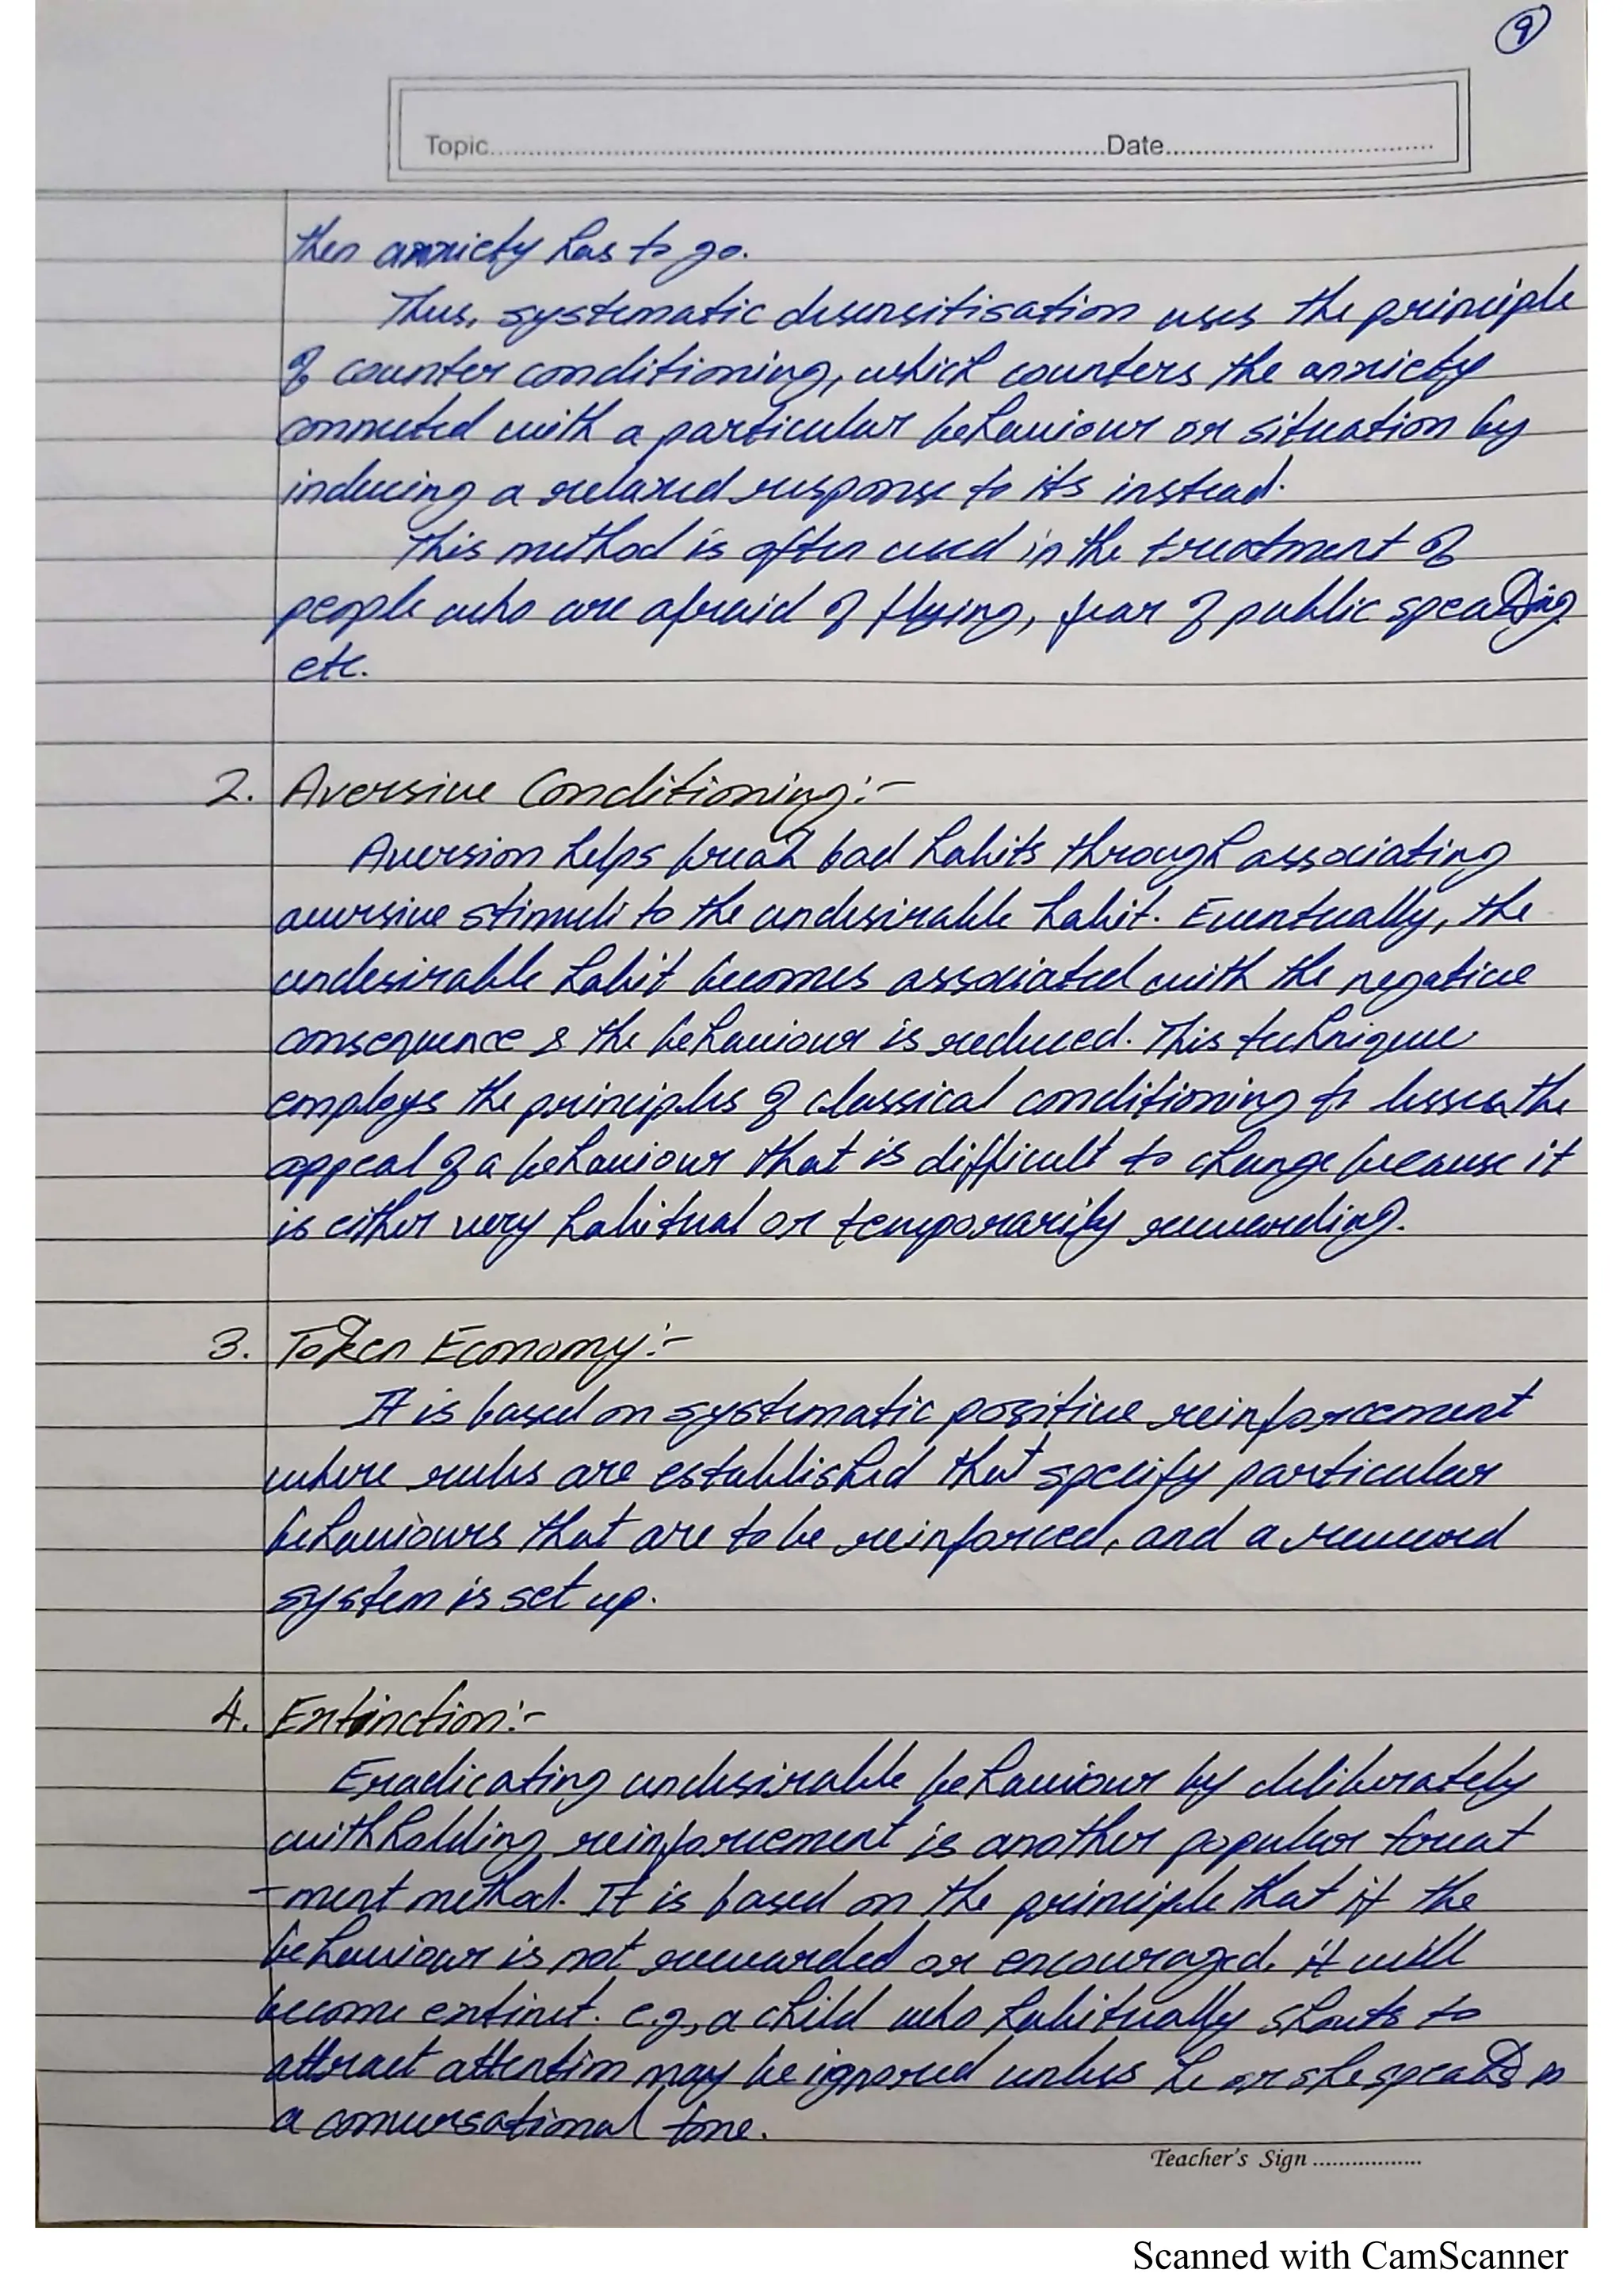 9
Topic.....................Date.....................
then anxiety has to go.
Thus, systematic desensitisation uses the principle
of counter conditioning, which counters the anxiety
connected with a particular behaviour or situation by
inducing a relaxed response to its instead.
This method is often used in the treatment of
people who are afraid of flying, fear of public speaking
etc.
2. Aversive Conditioning:-
Aversion helps break bad habits through associating
aversive stimuli to the undesirable habit. Eventually, the
undesirable habit becomes associated with the negative
consequence & the behaviour is reduced. This technique
employs the principles of classical conditioning to lessen the
appeal of a behaviour that is difficult to change because it
is either very habitual or temporarily rewarding.
3. Token Economy:-
It is based on systematic positive reinforcement
where rules are established that specify particular
behaviours that are to be reinforced, and a reward
system is set up.
4. Extinction:-
Eradicating undesirable behaviour by deliberately
withholding reinforcement is another popular treat
-ment method. It is based on the principle that if the
behaviour is not rewarded or encouraged, it will
become extinct. e.g., a child who habitually shouts to
attract attention may be ignored unless he or she speaks in
a conversational tone.
Teacher's Sign ..................
Scanned with CamScanner